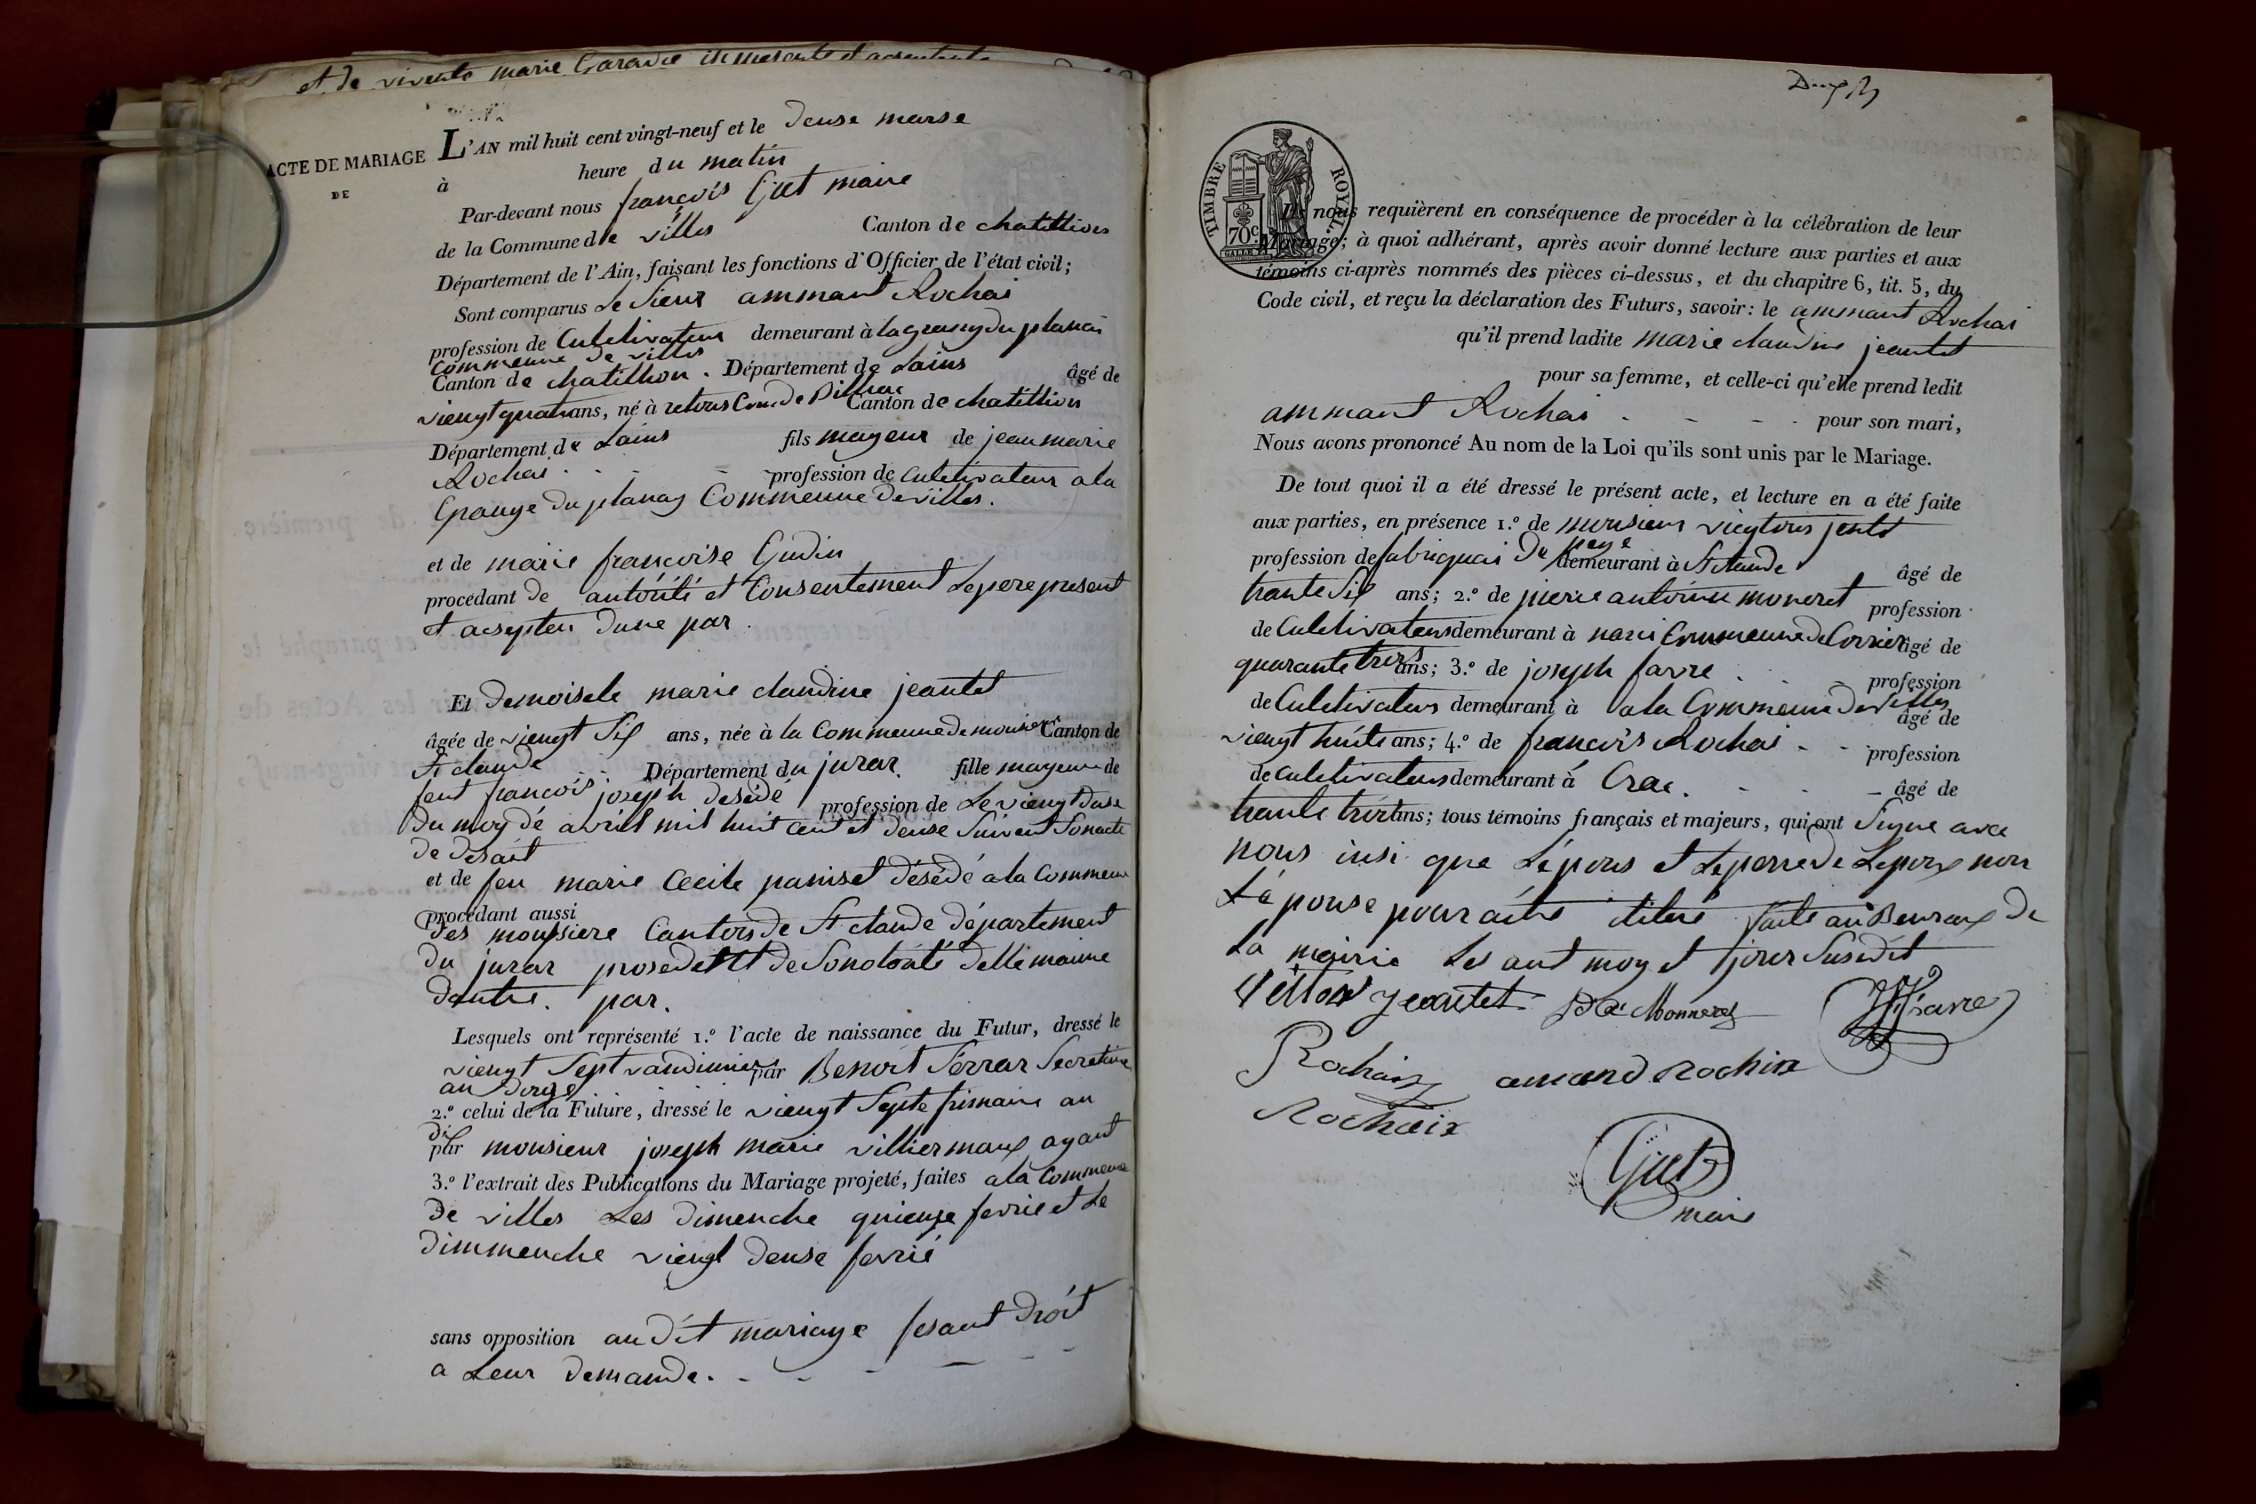 et de vivente marie
ACTE DE MARIAGE
DE
L'AN mil huit cent vingt-neuf et le deuse marse
à heure du matin
Par-devant nous françois Gut maire
de la Commune de villes Canton de chatillion
Département de l'Ain, faisant les fonctions d'Officier de l'état civil;
Sont comparus Le Sieur ammant Rochai
profession de Culetivateur demeurant à la grang du planai
Commeune de villes
Canton de chatillion . Département de Lains âgé de
viengt quatr ans, né à retors Con de Billiac Canton de chatillion
Département de Lains fils mageur de jean marie
Rochai profession de Culetivateur a la
Grange du planay Commeune de villes.
et de marie françoise Gudin
procédant de autorité et Consentement Le pere present
et acsepten dune par.
Et demoisele marie claudine jeantet
âgée de viengt Sis ans, née à la Commeune de Canton de
St claude Département du jurar. fille mageure de
feut francois joseph desédé profession de Le viengt duse
du moy dé avril mil huit cent et deuse Suivent Son acte
de desait
et de feu marie Cecile paniset désédé a la Commeune
procédant aussi
des moussiere Canton de St claude département
du jurar prosedet et de Sonotorité delle maime
dautre. par.
Lesquels ont représenté 1.º l'acte de naissance du Futur, dressé le
viengt Sept vandimier par Benoit Serrar Secretaire
an dorge
2.º celui de la Future, dressé le viengt Septe frimaire an
dis
par monsieur joseph marie villiermaux ayant
3.º l'extrait des Publications du Mariage projeté, faites a la Commeune
de villes Les dimenche quienze fevrie et Le
dimmenche viengt deuse fevrié
sans opposition au dit mariage fesant droit
a Leur demande.
TIMBRE ROYAL
70c
Ils nous requièrent en conséquence de procéder à la célébration de leur
Mariage; à quoi adhérant, après avoir donné lecture aux parties et aux
témoins ci-après nommés des pièces ci-dessus, et du chapitre 6, tit. 5, du
Code civil, et reçu la déclaration des Futurs, savoir: le ammant Rochai
qu'il prend ladite marie claudine jeantet
pour sa femme, et celle-ci qu'elle prend ledit
ammant Rochai pour son mari,
Nous avons prononcé Au nom de la Loi qu'ils sont unis par le Mariage.
De tout quoi il a été dressé le présent acte, et lecture en a été faite
aux parties, en présence 1.º de monsieur viegtors
profession de fabriquai de peye demeurant à St claude âgé de
trante Sis ans; 2.º de pierre antoinne moneret profession
de Culetivateur demeurant à Commeune de âgé de
quarante trois ans; 3.º de joseph favre profession
de Culetivateur demeurant à a la Commeune de villes âgé de
viengt huite ans; 4.º de françois Rochai profession
de Culetivateur demeurant à Crac. âgé de
trante trois ans; tous témoins français et majeurs, qui ont Signe avec
nous insi que Lépous et Le perre de Lepoux non
Lé pouse pour aitre faite au Beuraux de
La mairie Les ant moy et jour Susedit
jeantet Monneret Favre
Rochaix amand Rochix
Rochaix
Gut
maire